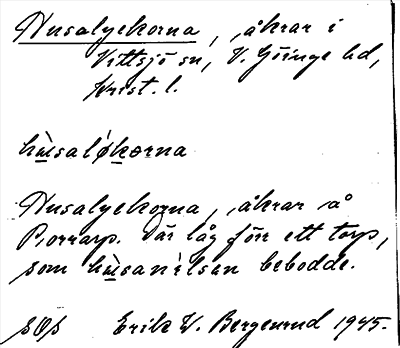 Husalyckorna, åkrar i
Vittsjö sn, V. Göinge hd,
Krist. l.
hùsaløkərna
Husalyckorna, åkrar på
Porrarp. Där låg förr ett torp,
som hùsanilsen bebodde.
sOs Erik W. Bergenrud 1945.